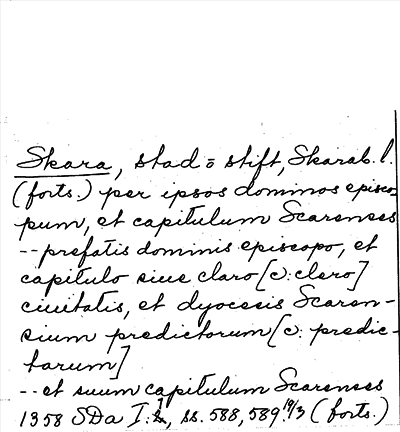 Skara, stad o stift, Skarab. l.
(forts.) per ipsos dominos episco-
pum, et capitulum Scarenses
-- prefatis dominis episcopo, et
capitulo siue claro [ɔ: clero]
ciuitatis, et dyocesis Scaren-
sium predictorum [ɔ: predic-
tarum]
-- et suum capitulum Scarenses
1358 SDa I:1, ss. 588, 589. 19/3 (forts.)